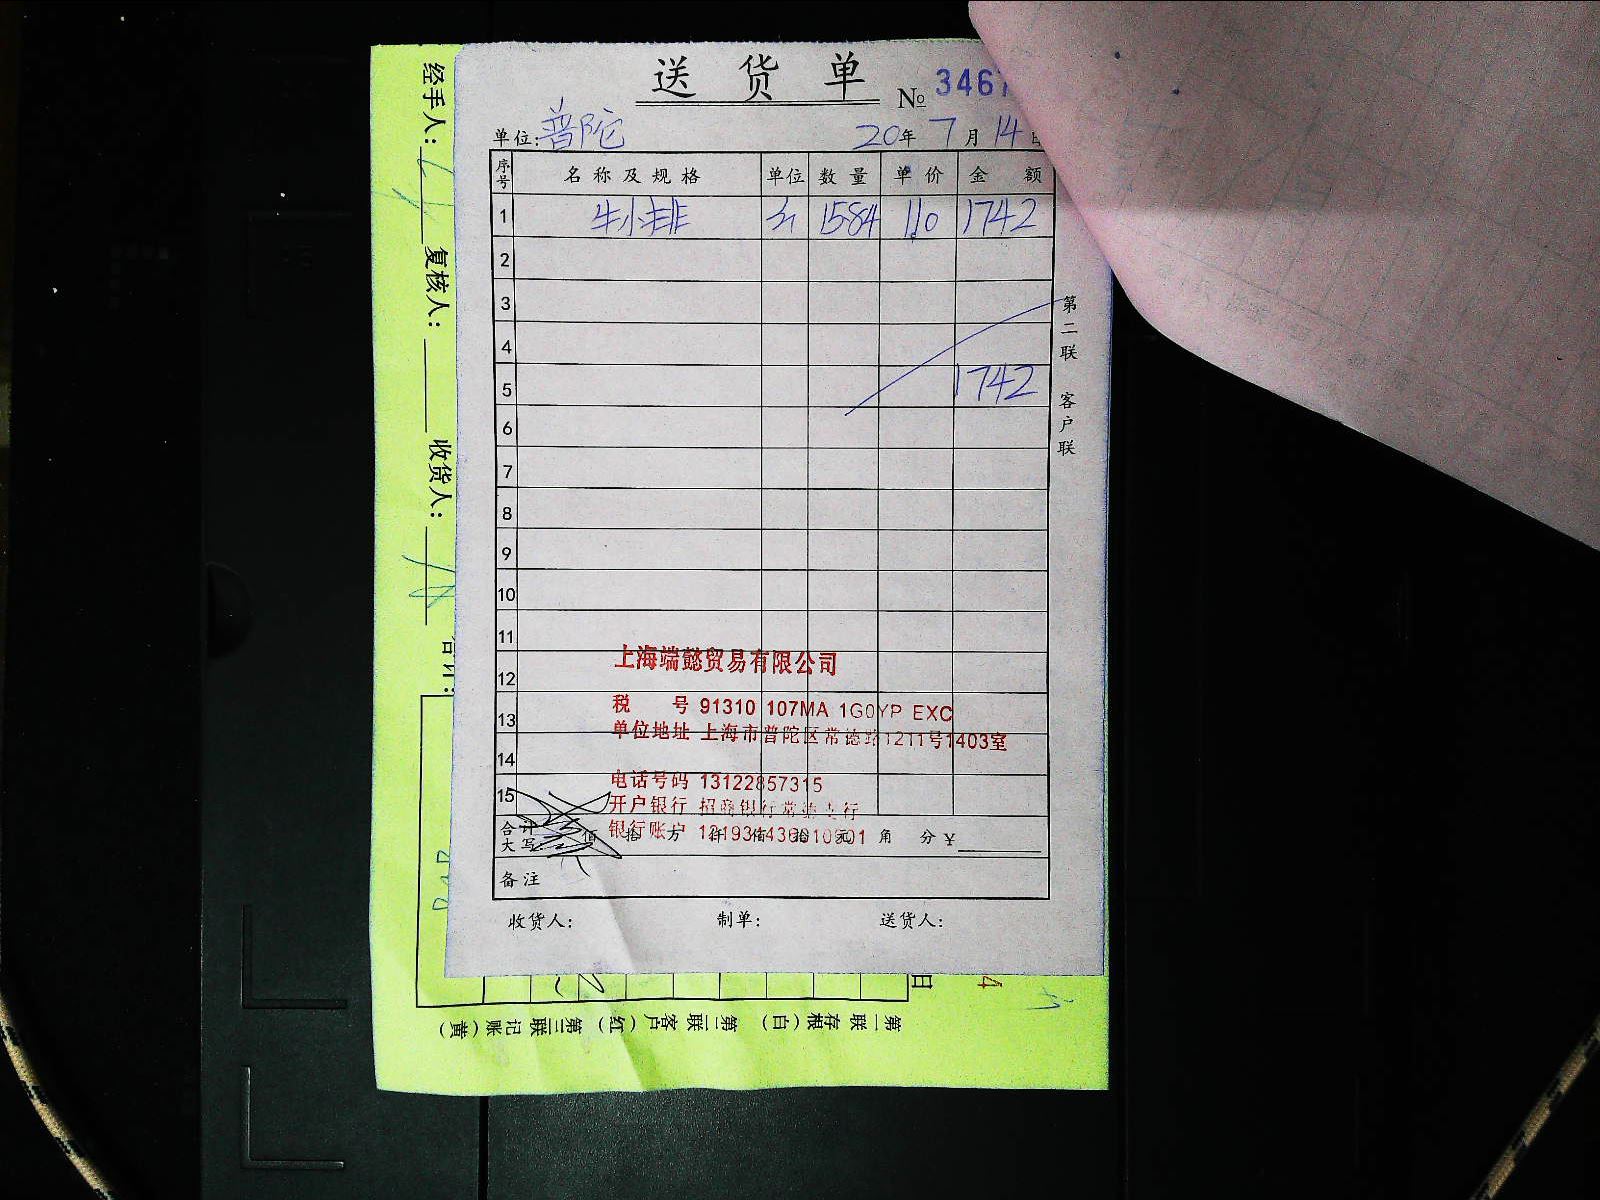 送货单
№ 3467
单位: 普陀 20年 7月 14日
序号 名称及规格 单位 数量 单价 金额
1 牛小排 斤 1584 110 1742
2
3
4
5 1742
6
7
8
9
10
11
12
13
14
15
上海端懿贸易有限公司
税 号 91310 107MA 1G0YP EXC
单位地址 上海市普陀区常德路1211号1403室
电话号码 13122857315
开户银行 招商银行常德支行
银行账户
合计大写 佰 拾 万 仟 佰 拾 元 角 分 ¥
备注
收货人: 制单: 送货人:
第二联 客户联
经手人:
复核人:
收货人:
合计:
日
第一联 存根(白) 第二联 客户(红) 第三联 记账(黄)